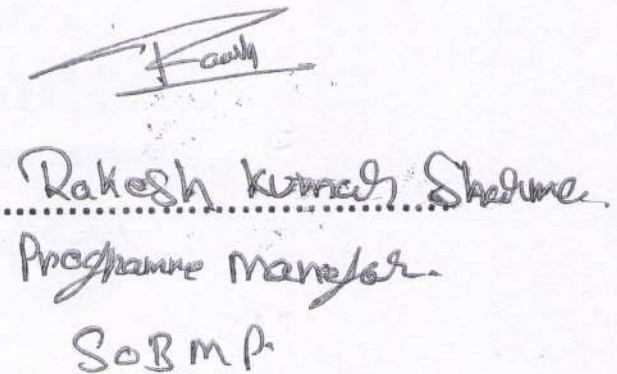 Rakesh Kumar Sharma
Programme Manager.
SOBMP.